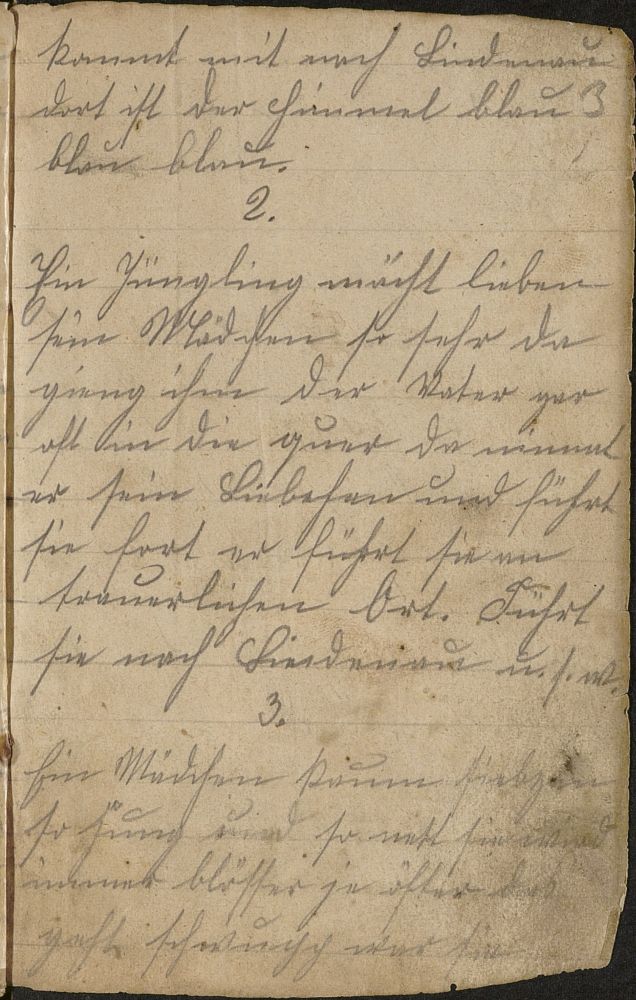 kommt mit nach Lindenau
dort ist der Himmel blau 3
blau blau.
2.
Ein Jüngling möcht lieben
sein Mädchen so sehr da
gieng ihm der Vater gar
oft in die quer da nimmt
er sein Liebchen und führt
sie fort er führt sie an
trauerlichen Ort. Führt
sie nach Liendenau u. s. w.
3.
Ein Mädchen kaum siebzen
so jung und so nett sie wird
immer blösser je öfter das
geht schwupp war sie